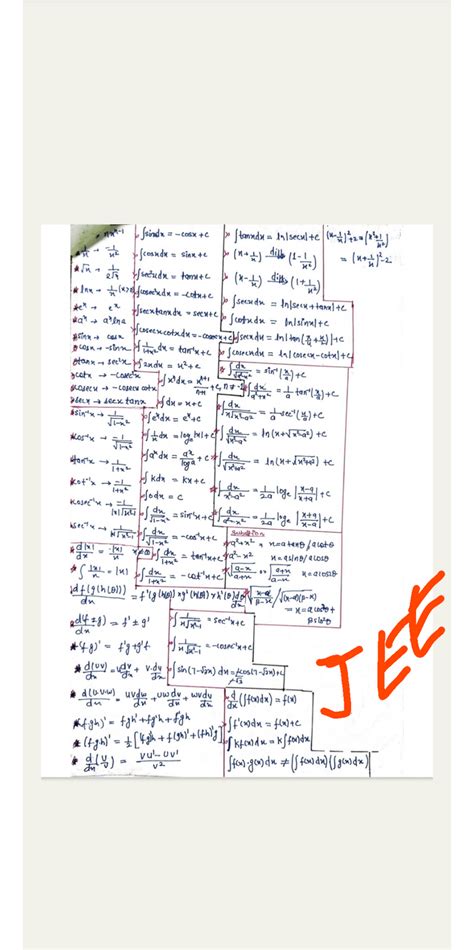 xⁿ → nxⁿ⁻¹
1/x → -1/x²
√x → 1/2√x
lnx → 1/x (x>0)
eˣ → eˣ
aˣ → aˣ lna
sinx → cosx
cosx → -sinx
tanx → sec²x
cotx → -cosec²x
cosecx → -cosecx cotx
secx → secx tanx
sin⁻¹x → 1/√1-x²
cos⁻¹x → -1/√1-x²
tan⁻¹x → 1/1+x²
cot⁻¹x → -1/1+x²
cosec⁻¹x → -1/|x|√x²-1
sec⁻¹x → 1/|x|√x²-1
d|x|/dx = |x|/x x≠0
∫|x|/x = |x|
d(f±g)/dx = f' ± g'
(f.g)' = f'g+g'f
d(uv)/dx = u dv/dx + v.du/dx
d(u.v.w)/dx = uv dw/dx + uw dv/dx + wv du/dx
(fgh)' = fgh'+fg'h+f'gh
d/dx(u/v) = vu'-uv'/v²
∫sinxdx = -cosx+c
∫cosxdx = sinx+c
∫sec²xdx = tanx+c
∫cosec²xdx = -cotx+c
∫secxtanxdx = secx+c
∫cosecxcotxdx = -cosecx+c
∫1/1+x² dx = tan⁻¹x+c
∫xⁿdx = xⁿ⁺¹/n+1 +c, n≠-1
∫dx = x+c
∫eˣdx = eˣ+c
∫1/x dx = log|x|+c
∫kdx = kx+c
∫0dx = c
∫dx/√1-x² = sin⁻¹x+c
∫dx/√1-x² = -cos⁻¹x+c
∫dx/1+x² = tan⁻¹x+c
∫dx/1+x² = -cot⁻¹x+c
∫1/x√x²-1 = sec⁻¹x+c
∫1/x√x²-1 = -cosec⁻¹x+c
∫tanxdx = ln|secx|+c
(x+1/x) diff (1-1/x²)
(x-1/x) diff (1+1/x²)
∫secxdx = ln|secx+tanx|+c
∫cotxdx = ln|sinx|+c
∫secxdx = ln|tan(π/4+x/2)|+c
∫cosecxdx = ln|cosecx-cotx|+c
(x-1/x)²+2 = (x²+1/x²)
= (x+1/x)²-2
∫dx/√a²-x² = sin⁻¹(x/a)+c
∫dx/a²+x² = 1/a tan⁻¹(x/a)+c
∫dx/x√x²-a² = 1/a sec⁻¹(x/a)+c
∫dx/√x²-a² = ln(x+√x²-a²)+c
∫dx/√x²+a² = ln(x+√x²+a²)+c
∫dx/x²-a² = 1/2a logₑ|x-a/x+a|+c
∫dx/a²-x² = 1/2a logₑ|x+a/x-a|+c
a²+x² x=atanθ/acotθ
a²-x² x=asinθ/acosθ
√a-x/a+x or √a+x/a-x x=acosθ
d/dx(∫f(x)dx) = f(x)
∫f'(x)dx = f(x)+c
∫kf(x)dx = k∫f(x)dx
∫f(x).g(x)dx ≠ (∫f(x)dx)(∫g(x)dx)
JEE